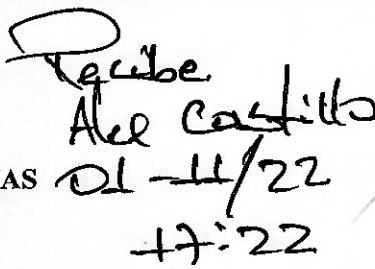 Recibe
Alee Castillo
AS 01-11/22
17:22